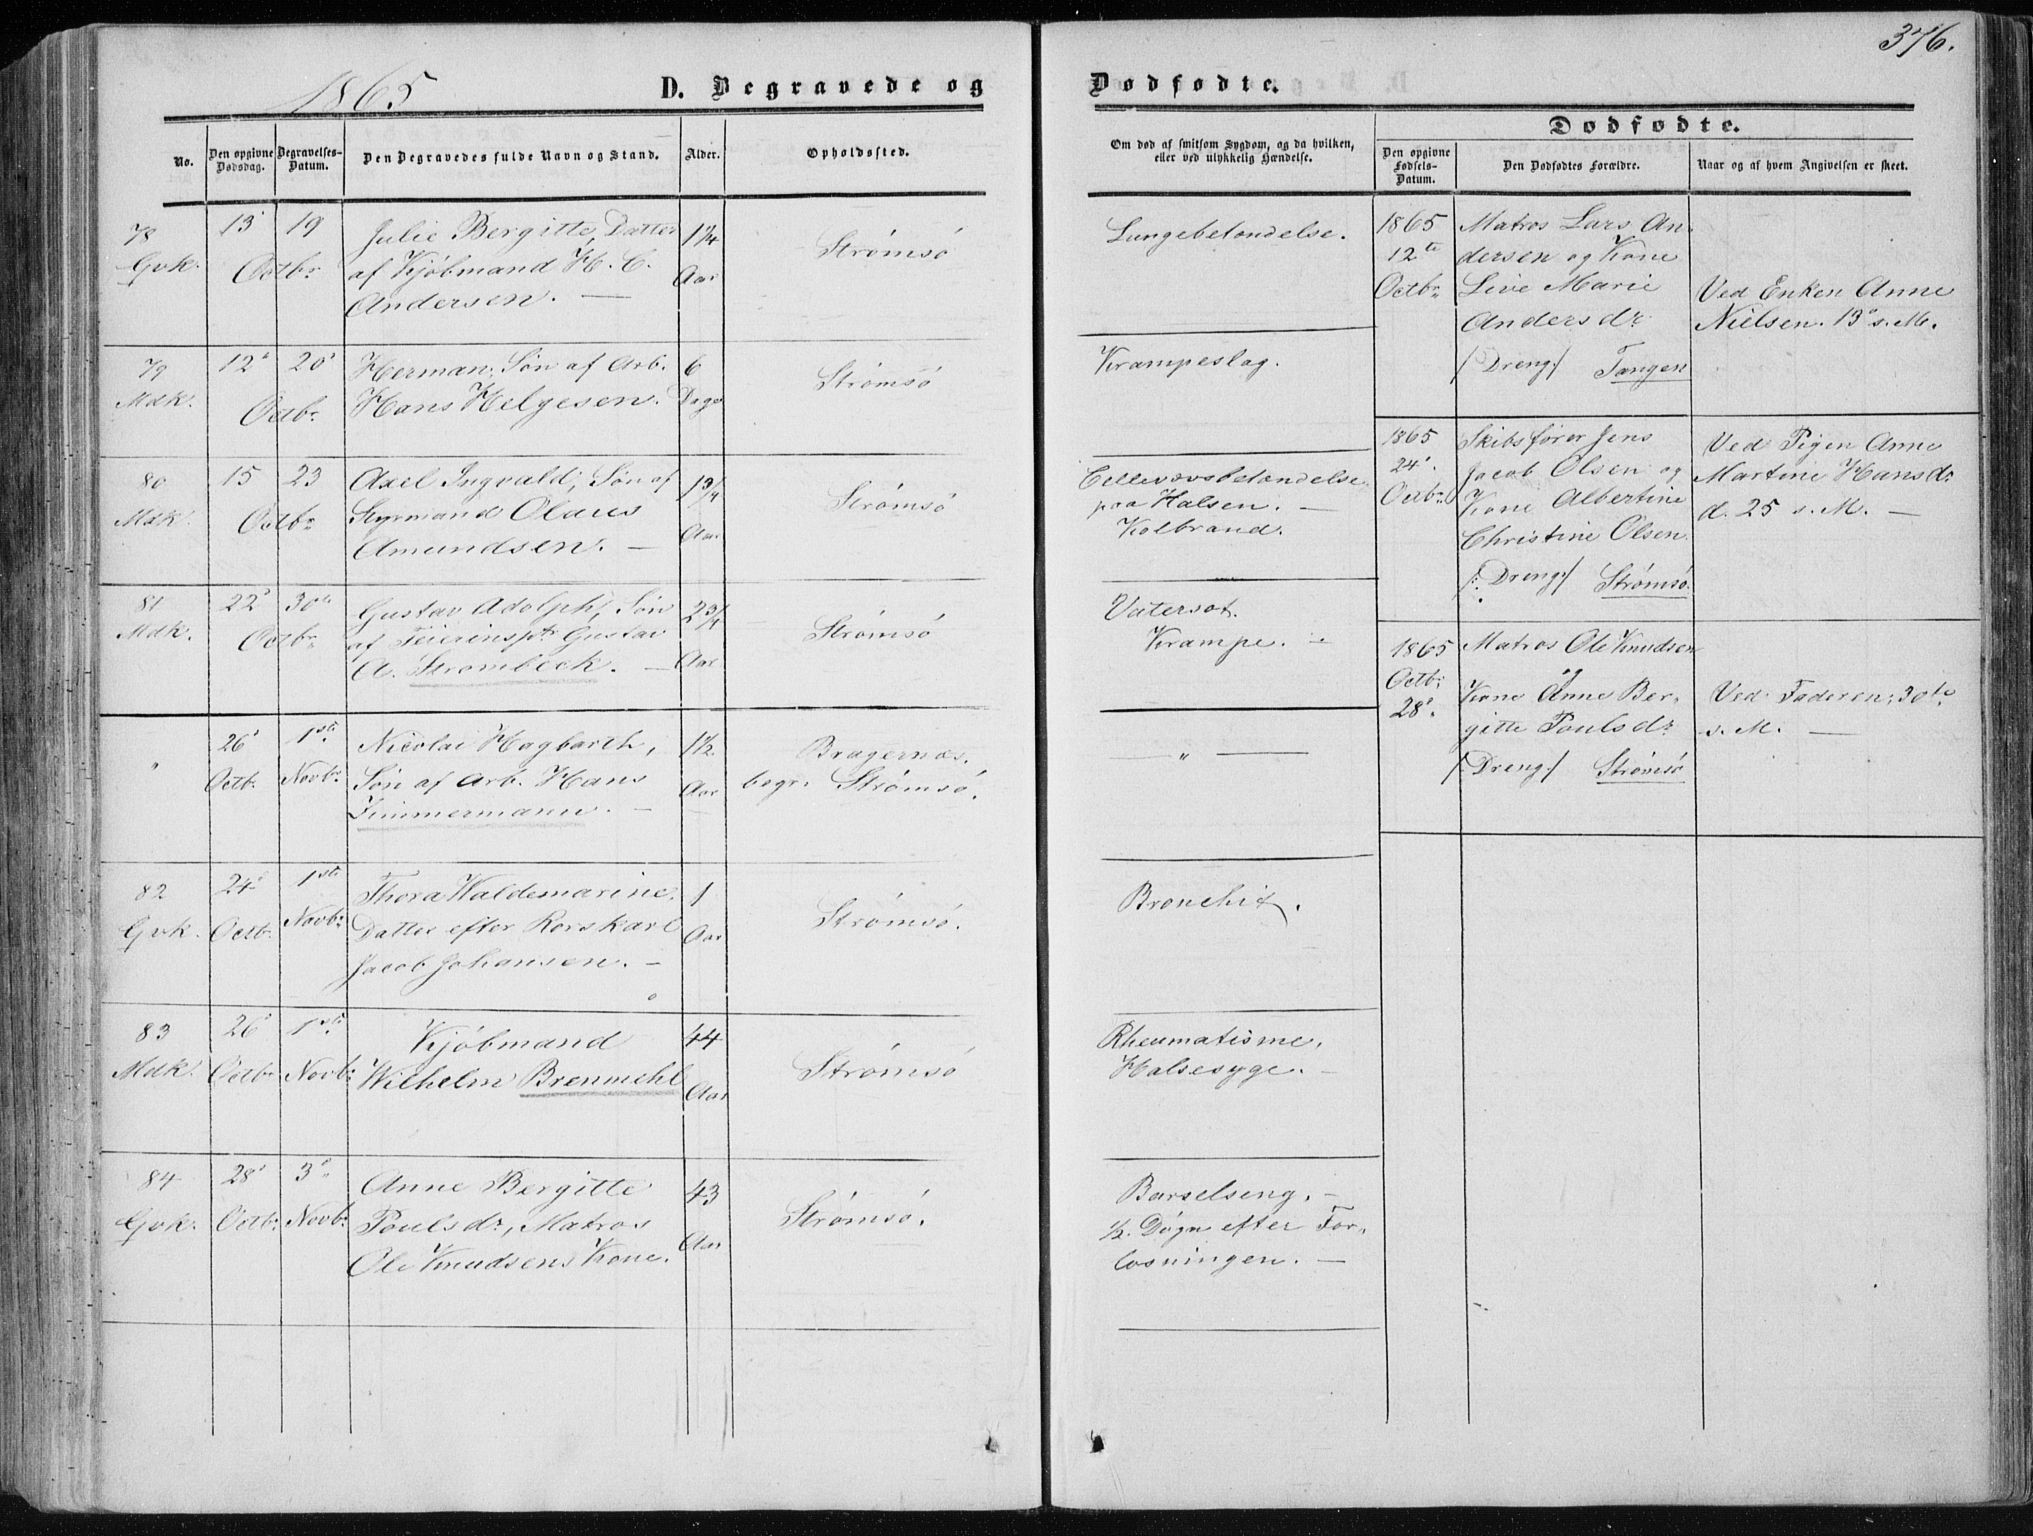 376.
1865 D. Begravede og Dødfødte.
No.
Den opgivne Dødsdag.
Begravelses-Datum.
Den Begravedes fulde Navn og Stand.
Alder.
Opholdssted.
Om død af smitsom Sygdom, og da hvilken,
eller ved ulykkelig Hændelse.
Dødfødte.
Den opgivne
Fødsels-
Datum.
Den Dødfødtes Forældre.
Naar og af hvem Angivelsen er skeet.
78 13' 19 Julie Bergitte, Datter 1¼ Strømsø Lungebetændelse.
Gvk. Octbr. af Kjøbmand H. C. Aar
Andersen. —
79 12' 20' Herman, Søn af Arb. 6 Strømsø Krampeslag.
Mdk. Octbr. Hans Helgesen. Dage
80 15 23 Axel Ingvald, Søn af 1¾ Strømsø Cellevævsbetændelse
Mdk. Octbr. Styrmand Olaus paa Halsen. —
Amundsen. — Aar Kolbrand.
81 22' 30te Gustav Adolph, Søn 2¾ Strømsø Vatersot.
Mdk. Octbr. af Feierinsptr Gustav Krampe. —
A. Strombeck. — Aar
" 26' 1ste Nicolai Hagbarth, 1½ Bragernæs. — " —
Octb. Novbr. Søn af Arb. Hans Aar begr. Strømsø.
Timmermann. —
82 24' 1ste Thora Waldemarine, 1 Strømsø. Bronchit.
Gvk. Octb. Novbr. Datter efter Rorskarl Aar
Jacob Johansen. —
83 26' 1ste Kjøbmand 44 Strømsø Rheumatisme.
Mdk. Octbr. Novbr. Wilhelm Brenmehl Aar Halsesyge. —
84 28' 3' Anne Bergitte 43 Strømsø. Barselseng. —
Gvk. Octbr. Novbr. Poulsdr, Matros ½ Døgn efter For-
Ole Knudsens Kone. Aar løsningen. —
1865 Matros Lars An-
12te dersen og Kone
Octbr. Live Marie Ved Enken Anne
Andersdr Nielsen. 13' s. M.
/: Dreng :/ Tangen
1865 Skibsfører Jens Ved Pigen Anne
24' Jacob Olsen og Martine Hansdr
Octbr. Kone Albertine d. 25 s. M. —
Christine Olsen.
/: Dreng :/ Strømsø.
1865 Matros Ole Knudsen
Octb: og
28' Kone Anne Ber- Ved Faderen, 30te
gitte Poulsdr s. M. —
/: Dreng :/ Strømsø